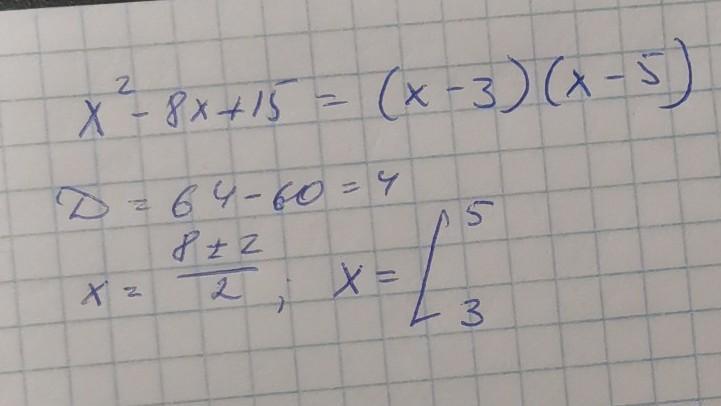 x² - 8x + 15 = (x - 3)(x - 5)
D = 64 - 60 = 4
x = (8 ± 2)/2 ; x = [ 5
3